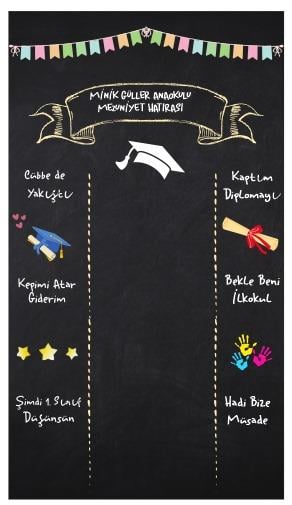 MİNİK GÜLLER ANAOKULU
MEZUNİYET HATIRASI
Cübbe de
Yakıştı
Kaptım
Diplomayı
Kepimi Atar
Giderim
Bekle Beni
İlkokul
Şimdi 1. Sınıf
Düşünsün
Hadi Bize
Müsade